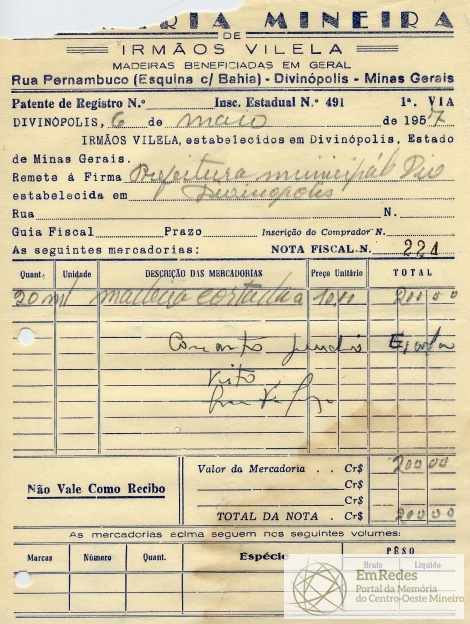 ARIA MINEIRA
DE
IRMÃOS VILELA
MADEIRAS BENEFICIADAS EM GERAL
Rua Pernambuco (Esquina c/ Bahia) - Divinópolis - Minas Gerais
Patente de Registro N.º Insc. Estadual N.º 491 1ª. VIA
DIVINÓPOLIS, 6 de maio de 1957
IRMÃOS VILELA, estabelecidos em Divinópolis, Estado
de Minas Gerais.
Remete á Firma Prefeitura municipal Div
estabelecida em Divinopolis
Rua N.
Guia Fiscal Prazo Inscrição do Comprador N.
As seguintes mercadorias: NOTA FISCAL.N. 224
Quant. Unidade DESCRIÇÃO DAS MERCADORIAS Preço Unitário TOTAL
20 mt madeira cortada a 10,00 200 00
Visto
Valor da Mercadoria . . Cr$ 200 00
Cr$
Não Vale Como Recibo
Cr$
TOTAL DA NOTA . Cr$ 200 00
As mercadorias acima seguem nos seguintes volumes:
Marcas Número Quant. Espécie PÊSO
Bruto Líquido
EmRedes
Portal da Memória
do Centro-Oeste Mineiro